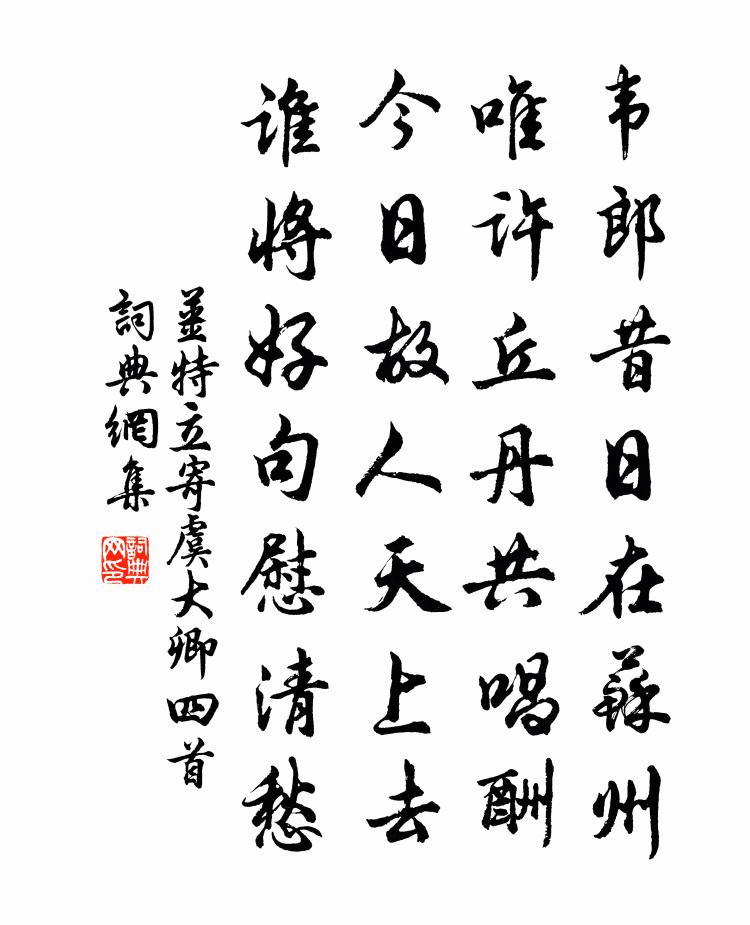 韦郎昔日在蘇州
唯许丘丹共唱酬
今日故人天上去
谁将好句慰清愁
姜特立寄虞大卿四首
詞典網集
詞典网印